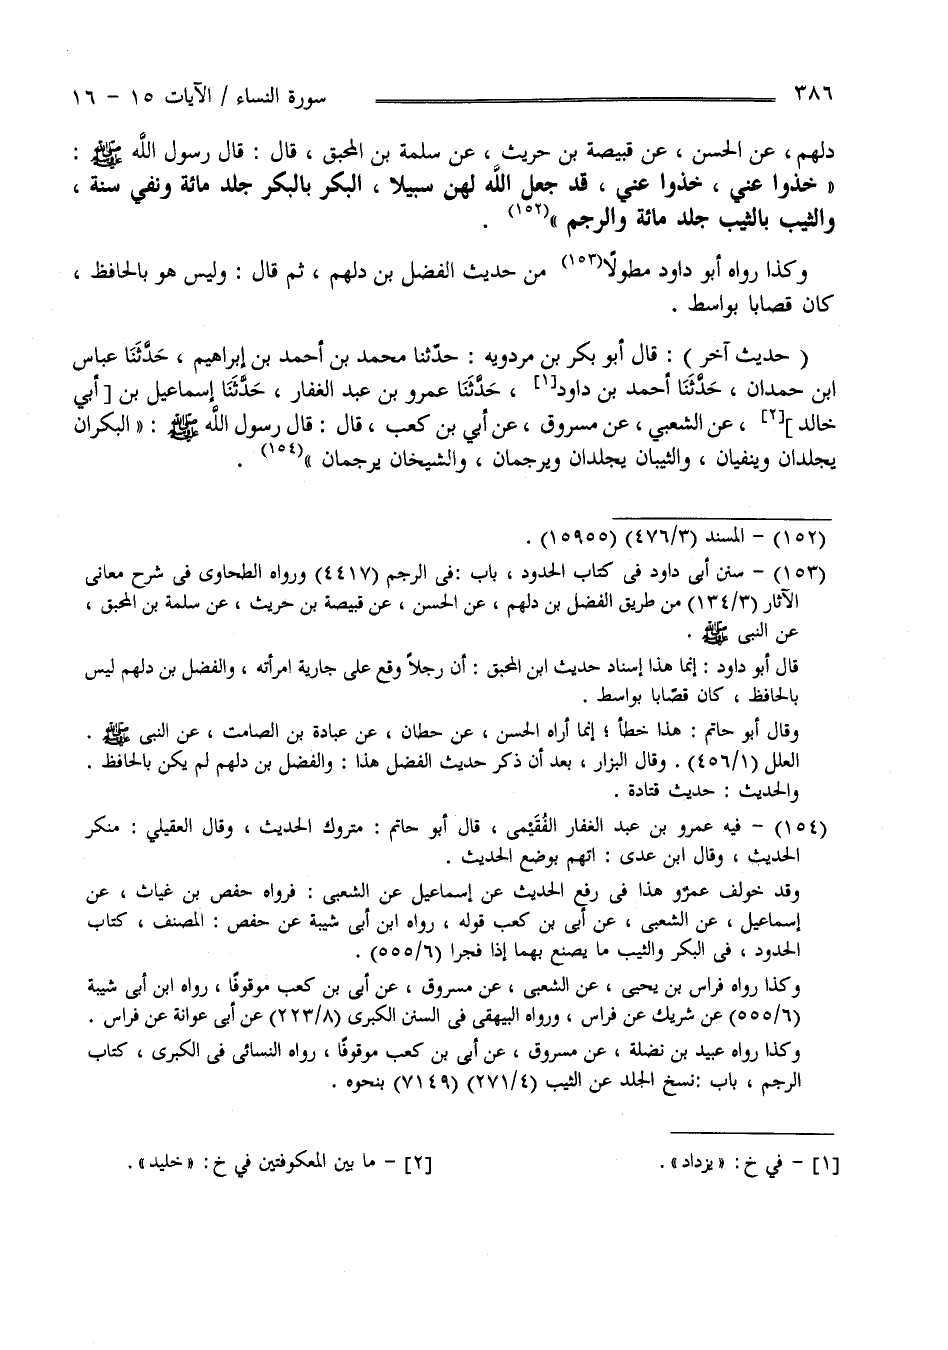 ٣٨٦ سورة النساء / الآيات ١٥ - ١٦
دلهم ، عن الحسن ، عن قبيصة بن حريث ، عن سلمة بن المحبق ، قال : قال رسول اللَّه ﷺ :
« خذوا عني ، خذوا عني ، قد جعل اللَّه لهن سبيلا ، البكر بالبكر جلد مائة ونفي سنة ،
والثيب بالثيب جلد مائة والرجم »(١٥٢) .
وكذا رواه أبو داود مطولًا(١٥٣) من حديث الفضل بن دلهم ، ثم قال : وليس هو بالحافظ ،
كان قصابا بواسط .
( حديث آخر ) : قال أبو بكر بن مردويه : حدّثنا محمد بن أحمد بن إبراهيم ، حَدَّثَنَا عباس
ابن حمدان ، حَدَّثَنَا أحمد بن داود[١] ، حَدَّثَنَا عمرو بن عبد الغفار ، حَدَّثَنَا إسماعيل بن [ أبي
خالد ][٢] ، عن الشعبي ، عن مسروق ، عن أبي بن كعب ، قال : قال رسول اللَّه ﷺ : « البكران
يجلدان وينفيان ، والثيبان يجلدان ويرجمان ، والشيخان يرجمان »(١٥٤) .
(١٥٢) - المسند (٤٧٦/٣) (١٥٩٥٥) .
(١٥٣) - سنن أبى داود فى كتاب الحدود ، باب :فى الرجم (٤٤١٧) ورواه الطحاوى فى شرح معانى
الآثار (١٣٤/٣) من طريق الفضل بن دلهم ، عن الحسن ، عن قبيصة بن حريث ، عن سلمة بن المحبق ،
عن النبى ﷺ .
قال أبو داود : إنما هذا إسناد حديث ابن المحبق : أن رجلاً وقع على جارية امرأته ، والفضل بن دلهم ليس
بالحافظ ، كان قصّابا بواسط .
وقال أبو حاتم : هذا خطأ ؛ إنما أراه الحسن ، عن حطان ، عن عبادة بن الصامت ، عن النبى ﷺ .
العلل (٤٥٦/١) . وقال البزار ، بعد أن ذكر حديث الفضل هذا : والفضل بن دلهم لم يكن بالحافظ .
والحديث : حديث قتادة .
(١٥٤) - فيه عمرو بن عبد الغفار الفُقَيْمى ، قال أبو حاتم : متروك الحديث ، وقال العقيلي : منكر
الحديث ، وقال ابن عدى : اتهم بوضع الحديث .
وقد خولف عمرٌو هذا فى رفع الحديث عن إسماعيل عن الشعبى : فرواه حفص بن غياث ، عن
إسماعيل ، عن الشعبى ، عن أبى بن كعب قوله ، رواه ابن أبى شيبة عن حفص : المصنف ، كتاب
الحدود ، فى البكر والثيب ما يصنع بهما إذا فجرا (٥٥٥/٦) .
وكذا رواه فراس بن يحيى ، عن الشعبى ، عن مسروق ، عن أبى بن كعب موقوفًا ، رواه ابن أبى شيبة
(٥٥٥/٦) عن شريك عن فراس ، ورواه البيهقى فى السنن الكبرى (٢٢٣/٨) عن أبى عوانة عن فراس .
وكذا رواه عبيد بن نضلة ، عن مسروق ، عن أبى بن كعب موقوفًا ، رواه النسائى فى الكبرى ، كتاب
الرجم ، باب :نسخ الجلد عن الثيب (٢٧١/٤) (٧١٤٩) بنحوه .
[١] - في خ : « يزداد » . [٢] - ما بين المعكوفتين في خ : « خليد » .